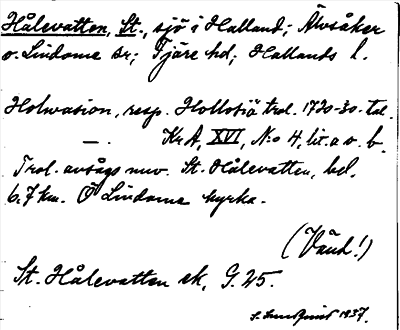 Hålevatten, St., sjö i Halland; Älvsåker
o. Lindome snr; Fjäre hd; Hallands l.
Holwasion, resp. Hollosiä trol. 1720-30-tal.
— . Kr A, XVI, N:o 4, lit. a o. b.
Trol. avsågs nuv. St. Hålevatten, bel.
6,7 km. Ö Lindome kyrka.
(Vänd!)
St. Hålevatten ek, G. 25.
S. Lundquist 1937.